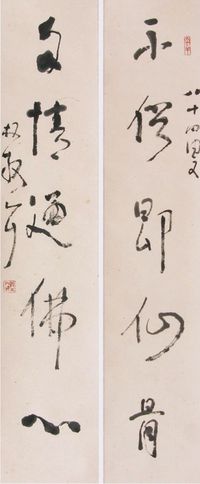 不俗即仙骨
八十四叟
多情迺佛心
林散耳